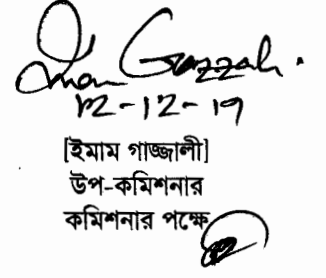 Iman Gazzali.
12-12-19
[ইমাম গাজ্জালী]
উপ-কমিশনার
কমিশনার পক্ষে